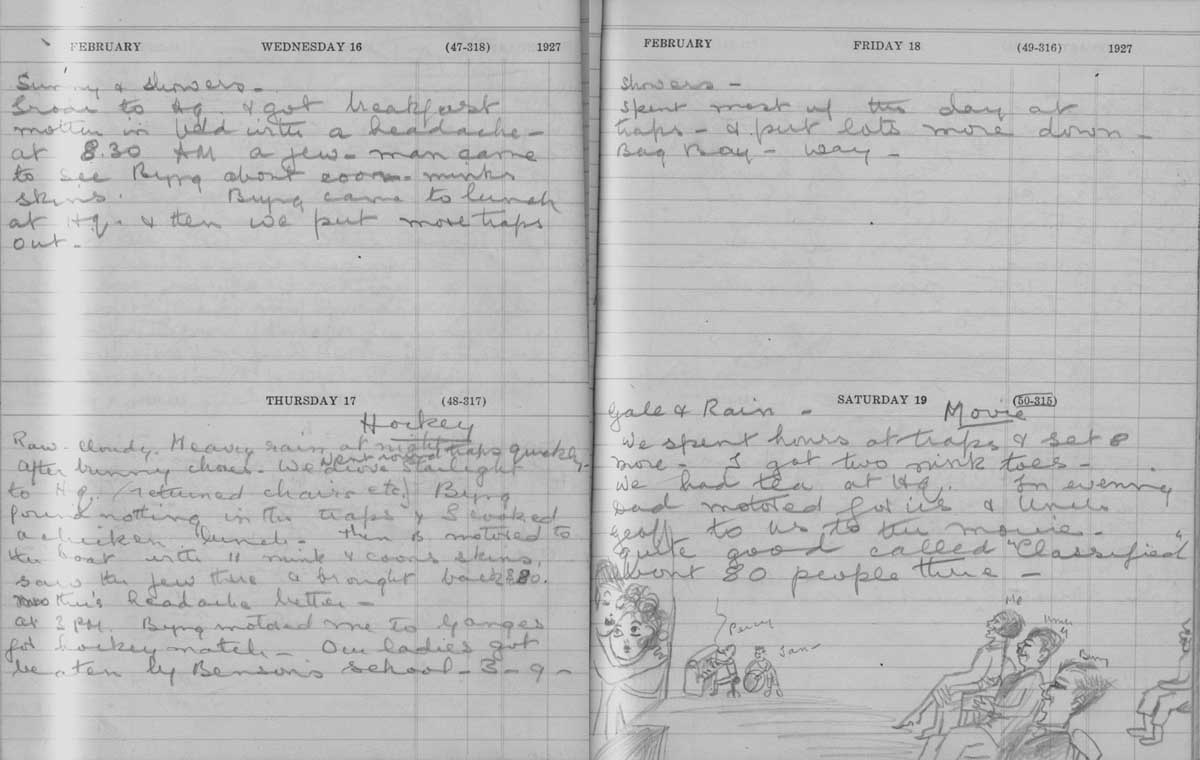 FEBRUARY WEDNESDAY 16 (47-318) 1927
Sunny & showers -
to Hq. & got breakfast
mother in bed with a headache -
at 8.30 AM a jew - man came
to see Byng about coon - minks
skins. Byng came to lunch
at Hq. & then we put more traps
out -
THURSDAY 17 (48-317)
Hockey
Raw - cloudy. Heavy rain at night traps quickly
after bunny chores. We drove Starlight
to Hq. (returned chairs etc) Byng
found nothing in the traps & I cooked
a chicken lunch. Then B motored to
the boat with 11 mink & coons skins,
saw the jew there & brought back $80.
mother's headache better -
at 2 PM. Byng motored me to Ganges
for hockey match - Our ladies got
beaten by Benson's school - 3 - 9 -
FEBRUARY FRIDAY 18 (49-316) 1927
Showers -
Spent most of the day at
traps - & put lots more down -
Bag Bay - way -
SATURDAY 19 (50-315)
Gale & Rain - Movie
We spent hours at traps & set 8
more - I got two mink toes -
We had tea at Hq. In evening
Dad motored for us & Uncle
Geoff to us to the movie -
quite good called "Classified"
about 80 people there -
Me
Percy
Jan -
Byng